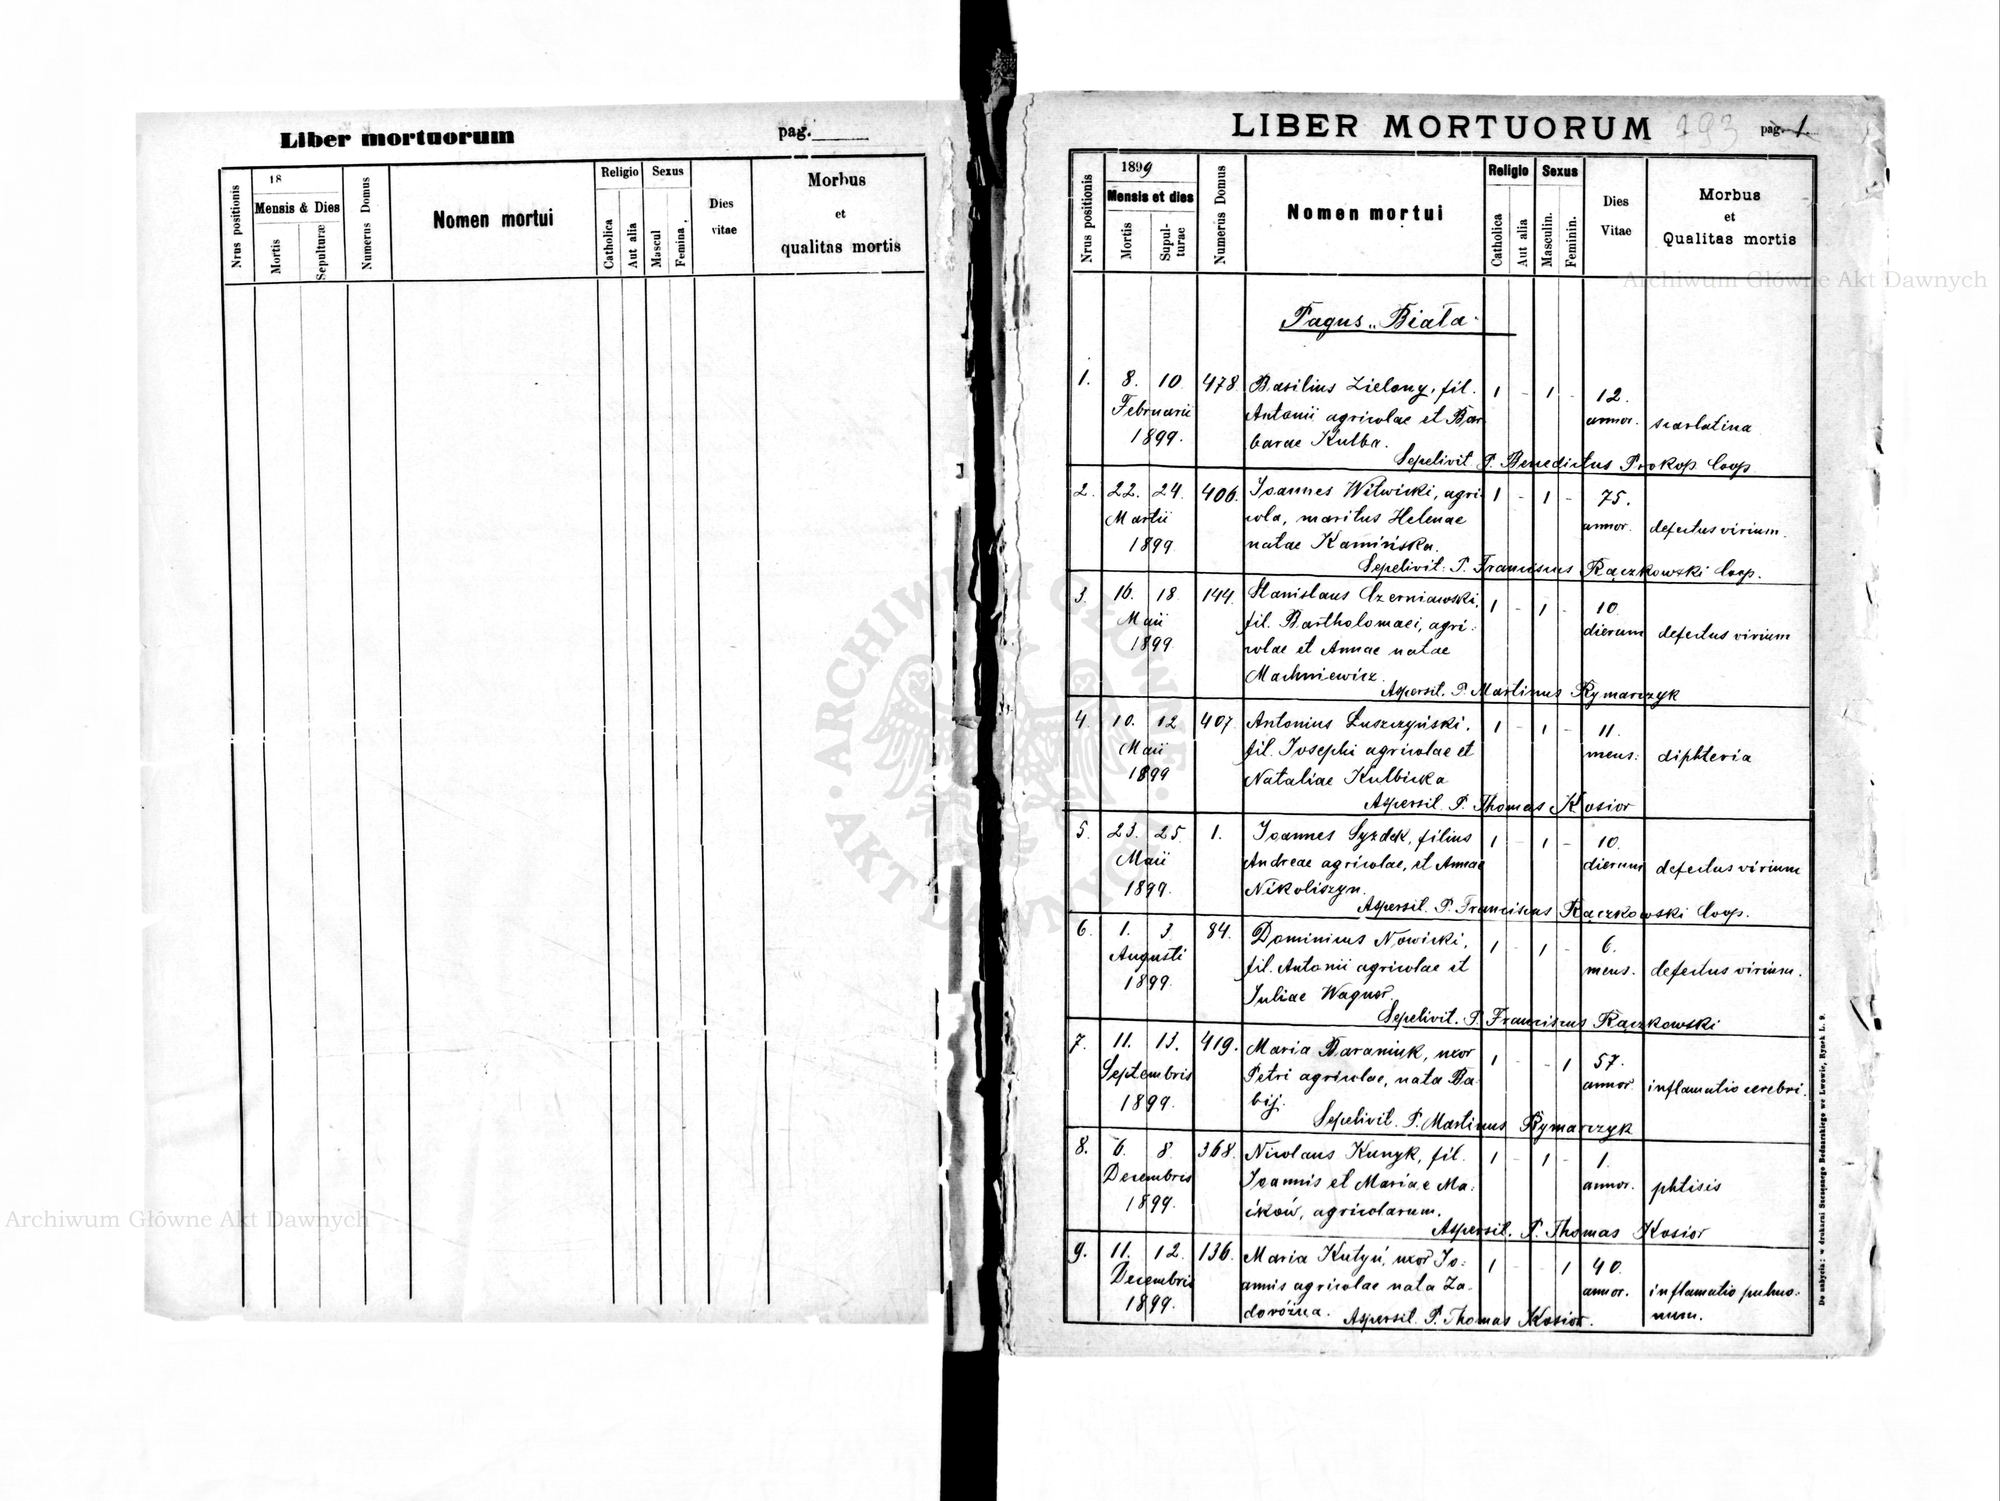 Liber mortuorum
pag.
Nrus positionis
18
Mensis & Dies
Mortis
Sepulturæ
Numerus Domus
Nomen mortui
Religio
Catholica
Aut alia
Sexus
Mascul
Femina,
Dies
vitae
Morbus
et
qualitas mortis
LIBER MORTUORUM
193
pag. 1.
Nrus positionis
1899
Mensis et dies
Mortis
Sepul-
turae
Numerus Domus
Nomen mortui
Religio
Catholica
Aut alia
Sexus
Masculin.
Feminin.
Dies
Vitae
Morbus
et
Qualitas mortis
Pagus „Biała"
1. 8. 10. 478. Basilius Zielony, fil. 1 - 1 - 12.
Februarii Antonii agricolae et Bar annor. scarlatina
1899. barae Kulba.
Sepelivit P. Benedictus Prokop Coop.
2. 22. 24. 406. Joannes Witwicki, agri- 1 - 1 - 75.
Martii cola, maritus Helenae annor. defectus virium.
1899 natae Kamińska.
Sepelivit: P. Franciscus Rączkowski Coop.
3. 16. 18. 144. Stanislaus Czerniawski, 1 - 1 - 10
Maii fil. Bartholomaei, agri- dierum defectus virium
1899 colae et Annae natae
Machniewicz.
Aspersit. P. Martinus Rymarczyk
4. 10. 12 407. Antonius Łuszczyński, 1 - 1 - 11.
Maii fil. Josephi agricolae et mens: diphteria
1899 Nataliae Kulbicka
Aspersit P. Thomas Kosior
5. 23. 25. 1. Joannes Syzdek, filius 1 - 1 - 10.
Maii Andreae agricolae, et Annae dierum defectus virium
1899. Nikoliszyn.
Aspersit. P. Franciscus Rączkowski Coop.
6. 1. 3. 84. Dominicus Nowicki, 1 - 1 - 6.
Augusti fil. Antonii agricolae et mens. defectus virium.
1899. Juliae Wagner
Sepelivit. P. Franciszus Rączkowski
7. 11. 13. 419. Maria Baraniuk, uxor 1 - - 1 57.
Septembris Petri agricolae, nata Ba- annor inflamatio cerebri.
1899. bij.
Sepelivit. P. Martinus Rymarczyk
8. 6. 8. 368. Nicolaus Kunyk, fil. 1 - 1 - 1.
Decembris Joannis et Mariae Ma- annor. phtisis
1899. ików, agricolarum.
Aspersit. P. Thomas Kosior
9. 11. 12. 136. Maria Kutyń, uxor Jo- 1 - 1 40.
Decembris annis agricolae nata Za- annor. inflamatio pulmo-
1899. dorożna. Aspersit. P. Thomas Kosior. num.
Do nabycia: w drukarni Szczęsnego Bednarskiego we Lwowie, Rynek L. 9.
Archiwum Główne Akt Dawnych
Archiwum Główne Akt Dawnych
ARCHIWUM GŁÓWNE
AKT DAWNYCH